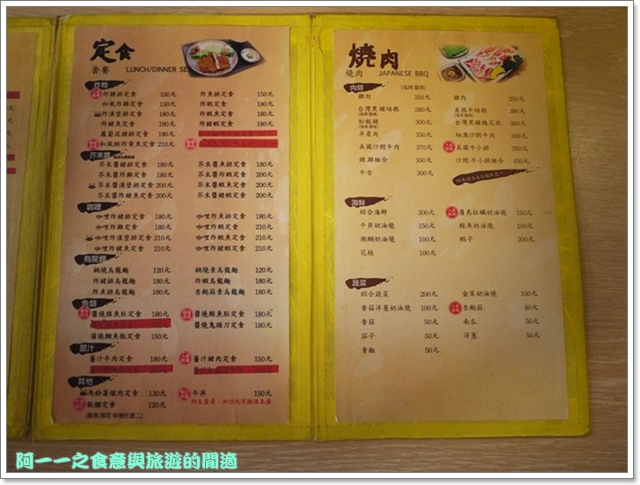 定食
套餐 LUNCH/DINNER SE
炸物
炸豬排定食 150元 炸魚排定食 150元
和風炸雞定食 150元 炸蝦定食 180元
炸漢堡排定食 150元 炸蝦魚定食 180元
炸豬魚定食 180元 炸豬蝦定食 180元
和風酥炸黃魚定食 210元
芥末醬
芥末醬豬排定食 180元 芥末醬魚排定食 180元
芥末醬炸雞定食 180元 芥末醬炸蝦定食 200元
芥末醬漢堡排定食 180元 芥末醬蝦魚定食 200元
芥末醬炸豬魚定食 200元 芥末醬豬蝦定食 200元
咖哩
咖哩炸豬排定食 180元 咖哩炸魚排定食 180元
咖哩炸雞定食 180元 咖哩炸蝦定食 210元
咖哩炸漢堡排定食 180元 咖哩蝦魚定食 210元
咖哩炸豬魚定食 210元 咖哩豬蝦定食 210元
烏龍麵
鍋燒烏龍麵 120元 鍋燒素烏龍麵 120元
炸豬排烏龍麵 150元 炸蝦烏龍麵 180元
炸魚排烏龍麵 150元 杏鮑菇素烏龍麵 180元
魚類
180元 180元
醬燒鬼頭刀定食 180元
蒲燒鯛魚飯定食 150元
薑汁
薑汁牛肉定食 180元 薑汁豬肉定食 150元
其他
120元 牛丼 150元
飯糰定食 120元
燒肉
燒肉 JAPANESE BBQ
肉類
雞肉 200元 豬肉
台灣黑豬培根 美國牛培根
松板豬 台灣黑豬梅花肉
羊肩肉 350元 紐澳沙朗牛肉
美國沙朗牛肉 370元 美國牛小排
豬雞組合 300元 沙朗牛小排組合
牛舌
海鮮
綜合海鮮 300元 廣島牡蠣奶油燒 150元
干貝奶油燒 150元 鮭魚奶油燒 100元
澳鯛奶油燒 100元 蝦子 200元
花枝 100元
蔬菜
綜合蔬菜 200元 金茸奶油燒 100元
香菇洋蔥奶油燒 100元 杏鮑菇 80元
香菇 50元 南瓜 50元
茄子 50元 洋蔥 50元
青椒 50元
阿一一之食意與旅遊的閒適